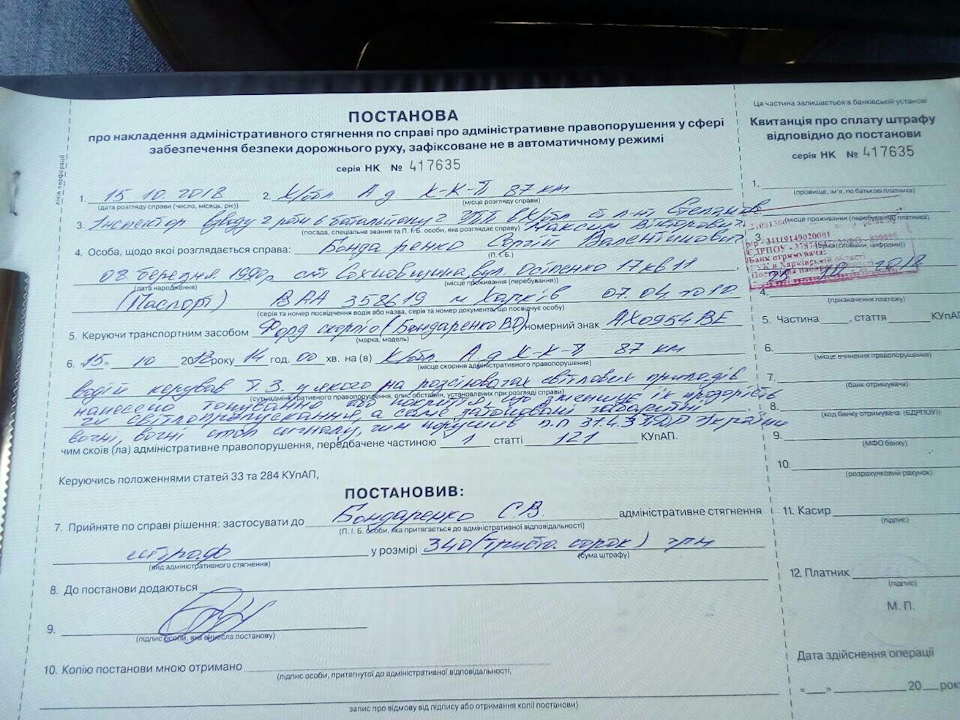 ПОСТАНОВА
про накладення адміністративного стягнення по справі про адміністративне правопорушення у сфері
забезпечення безпеки дорожнього руху, зафіксоване не в автоматичному режимі
серія НК № 417635
лінія перфорації
1. 15.10.2018 2. Х/обл А д К-К-П 87 км
(дата розгляду справи (число, місяць, рік)) (місце розгляду справи)
3. Інспектор взводу 2 роти 6 батальйону
Максим Вікторович
(посада, спеціальне звання та П. І. Б. особи, яка розглядає справу)
4. Особа, щодо якої розглядається справа: Бондаренко Сергій Валентинович
(П.І.Б.)
08 березня 1990р вул. Осіпенко 17 кв 11
(дата народження) (місце проживання (перебування))
(Паспорт) ВАА 358619 м Харків 07.04.2010
(серія та номер посвідчення водія або назва, серія та номер документа, що посвідчує особу)
5. Керуючи транспортним засобом Форд скорпіо (Бондаренко ВО) номерний знак АХ0954ВЕ
(марка, модель)
6. "15" 10 2018 року 14 год. 00 хв. на (в) Х/обл А д К-К-П 87 км
(місце скоєння адміністративного правопорушення)
водій керував Т.З. у якого на розсіювачах світлових приладів
(суть адміністративного правопорушення, опис обставин, установлених при розгляді справи)
нанесено тонування або покриття, що зменшує їх прозорість
чи світлопропускання, а саме затоновані габаритні
вогні, вогні стоп сигналу, чим порушив п.п 31.4.3 ПДР України
чим скоїв (ла) адміністративне правопорушення, передбачене частиною 1 статті 121 КУпАП.
Керуючись положеннями статей 33 та 284 КУпАП,
ПОСТАНОВИВ:
7. Прийняте по справі рішення: застосувати до Бондаренко С.В. адміністративне стягнення
(П. І. Б. особи, яка притягається до адміністративної відповідальності)
штраф у розмірі 340 (триста сорок) грн
(вид адміністративного стягнення) (сума штрафу)
8. До постанови додаються
9.
(підпис особи, яка винесла постанову)
10. Копію постанови мною отримано
(підпис особи, притягнутої до адміністративної відповідальності,
запис про відмову від підпису або отримання копії постанови)
Ця частина залишається в банківській установі
Квитанція про сплату штрафу
відповідно до постанови
серія НК № 417635
1.
(прізвище, ім'я, по батькові платника)
(місце проживання (перебування) платника)
р/р 31119149020001
ЄДРПОУ
Банк отримувача:
4.
(призначення платежу)
5. Частина , стаття КУпАП
6.
(місце вчинення правопорушення)
7.
(банк отримувача)
8.
(код банку отримувача (ЄДРПОУ))
9.
(МФО банку)
10.
(розрахунковий рахунок)
11. Касир
(підпис)
12. Платник
(підпис)
М. П.
Дата здійснення операції
« » 20 року